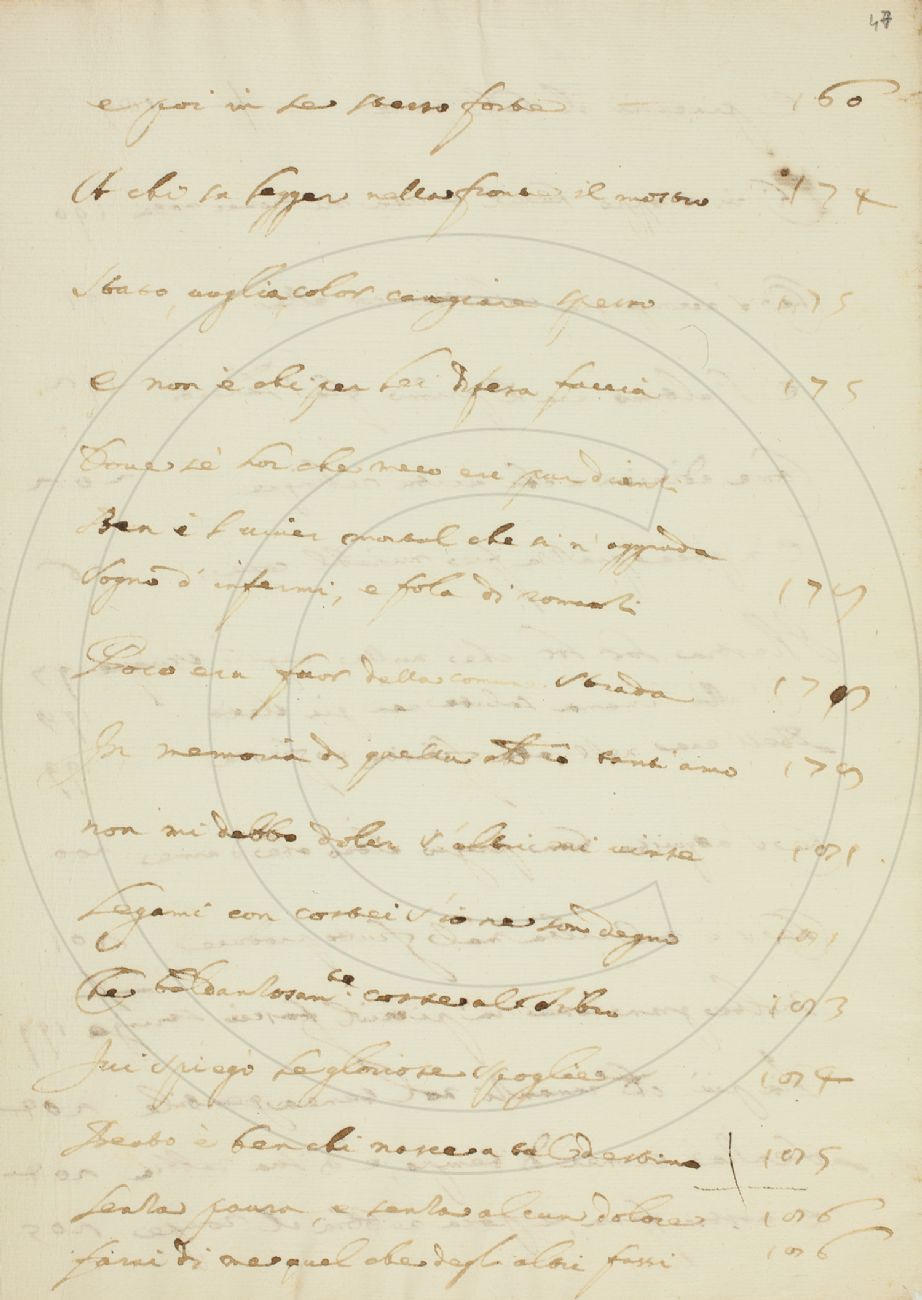 47
e poi in se stesso forte 160
A chi sa legger nella fronte il mostro 174
Stato, voglia, color cangiare spesso 175
E non è chi per lei difesa faccia 175
Dove sè hor che meco eri pur dianzi
Ben è l viver mortal che si n'aggrada
Sogno d'infermi, e fola di romanzi 179
Poco era fuor della comune strada 179
In memoria di quella 179
non mi debbo doler s'altri mi vinse 181
Legami con costei s'io ne son degno 181
che corse al Libro 183
Ivi spiegò le gloriose spoglie 184
Beato è ben chi nasce a tal destino 185
senza paura, e senza alcun dolore 186
farai di me quel che degli altri fassi 186